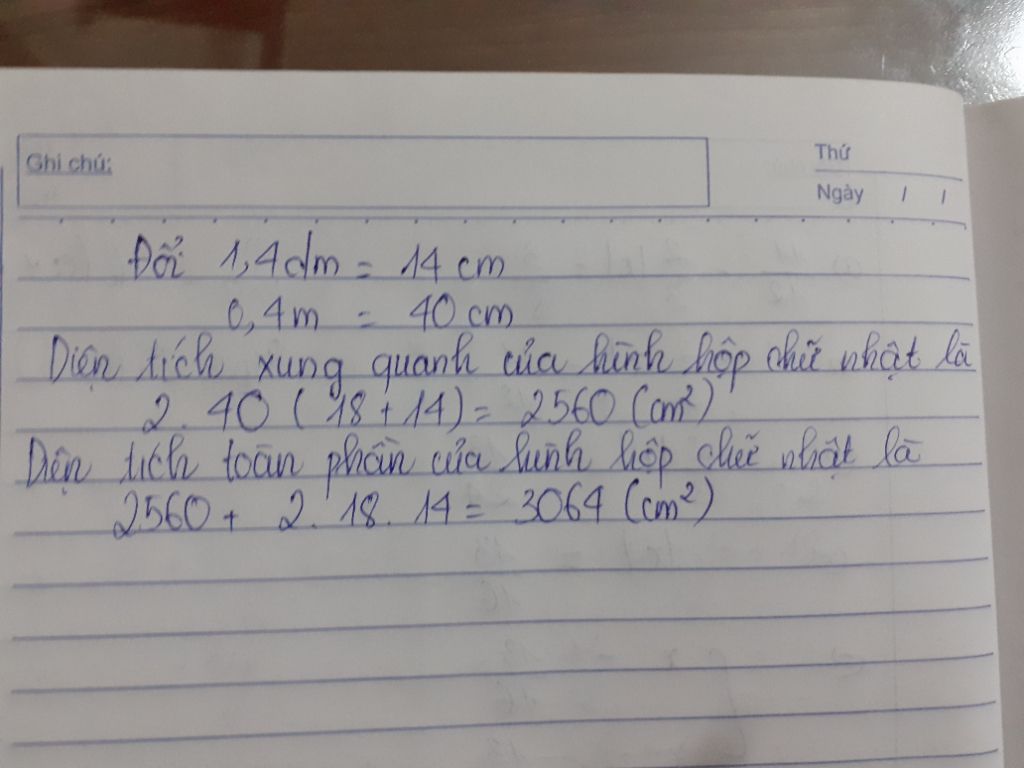 Ghi chú:
Thứ
Ngày / /
Đổi 1,4dm = 14 cm
0,4m = 40 cm
Diện tích xung quanh của hình hộp chữ nhật là
2. 40 ( 18 + 14) = 2560 (cm²)
Diện tích toàn phần của hình hộp chữ nhật là
2560 + 2. 18. 14 = 3064 (cm²)